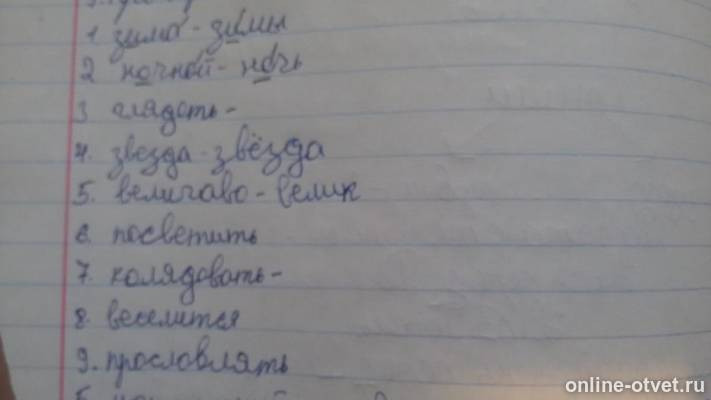 1 зима - зимы
2 ночной - ночь
3 глядоть -
4. звезда - звёзда
5. величаво - велик
6. посветить
7. колядовать -
8. веселится
9. прословлять
online-otvet.ru